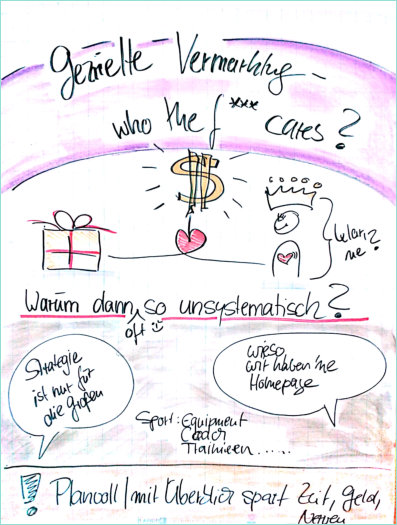 Gezielte Vermarktung –
who the f*** cares?
$
ne
Warum dann so unsystematisch?
oft
Strategie
ist nur für
die großen
wieso
wir haben 'ne
Homepage
Sport: Equipment
Trainieren.....
! Planvoll / mit Überblick spart Zeit, Geld,
Nerven